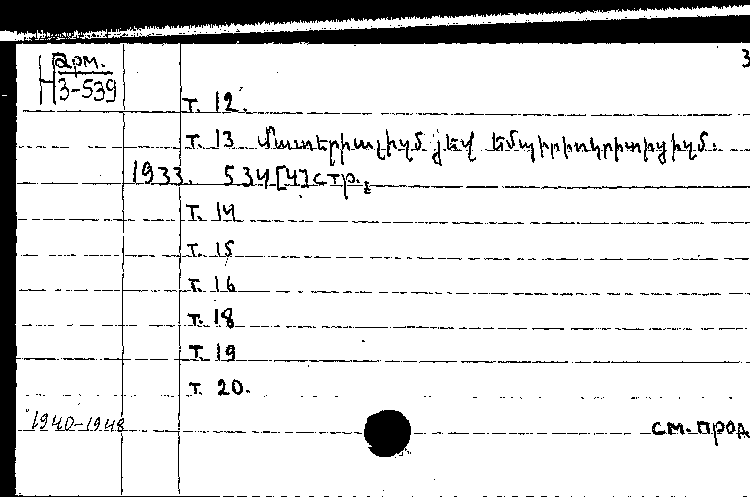 3
Арм.
Н 3-539
т. 12.
т. 13 Մատերիալիզմ յեվ եմպիրիոկրիտիցիզմ.
1933. 534[4]стр.
т. 14
т. 15
т. 16
т. 18
т. 19
т. 20.
1940-1948
см. прод